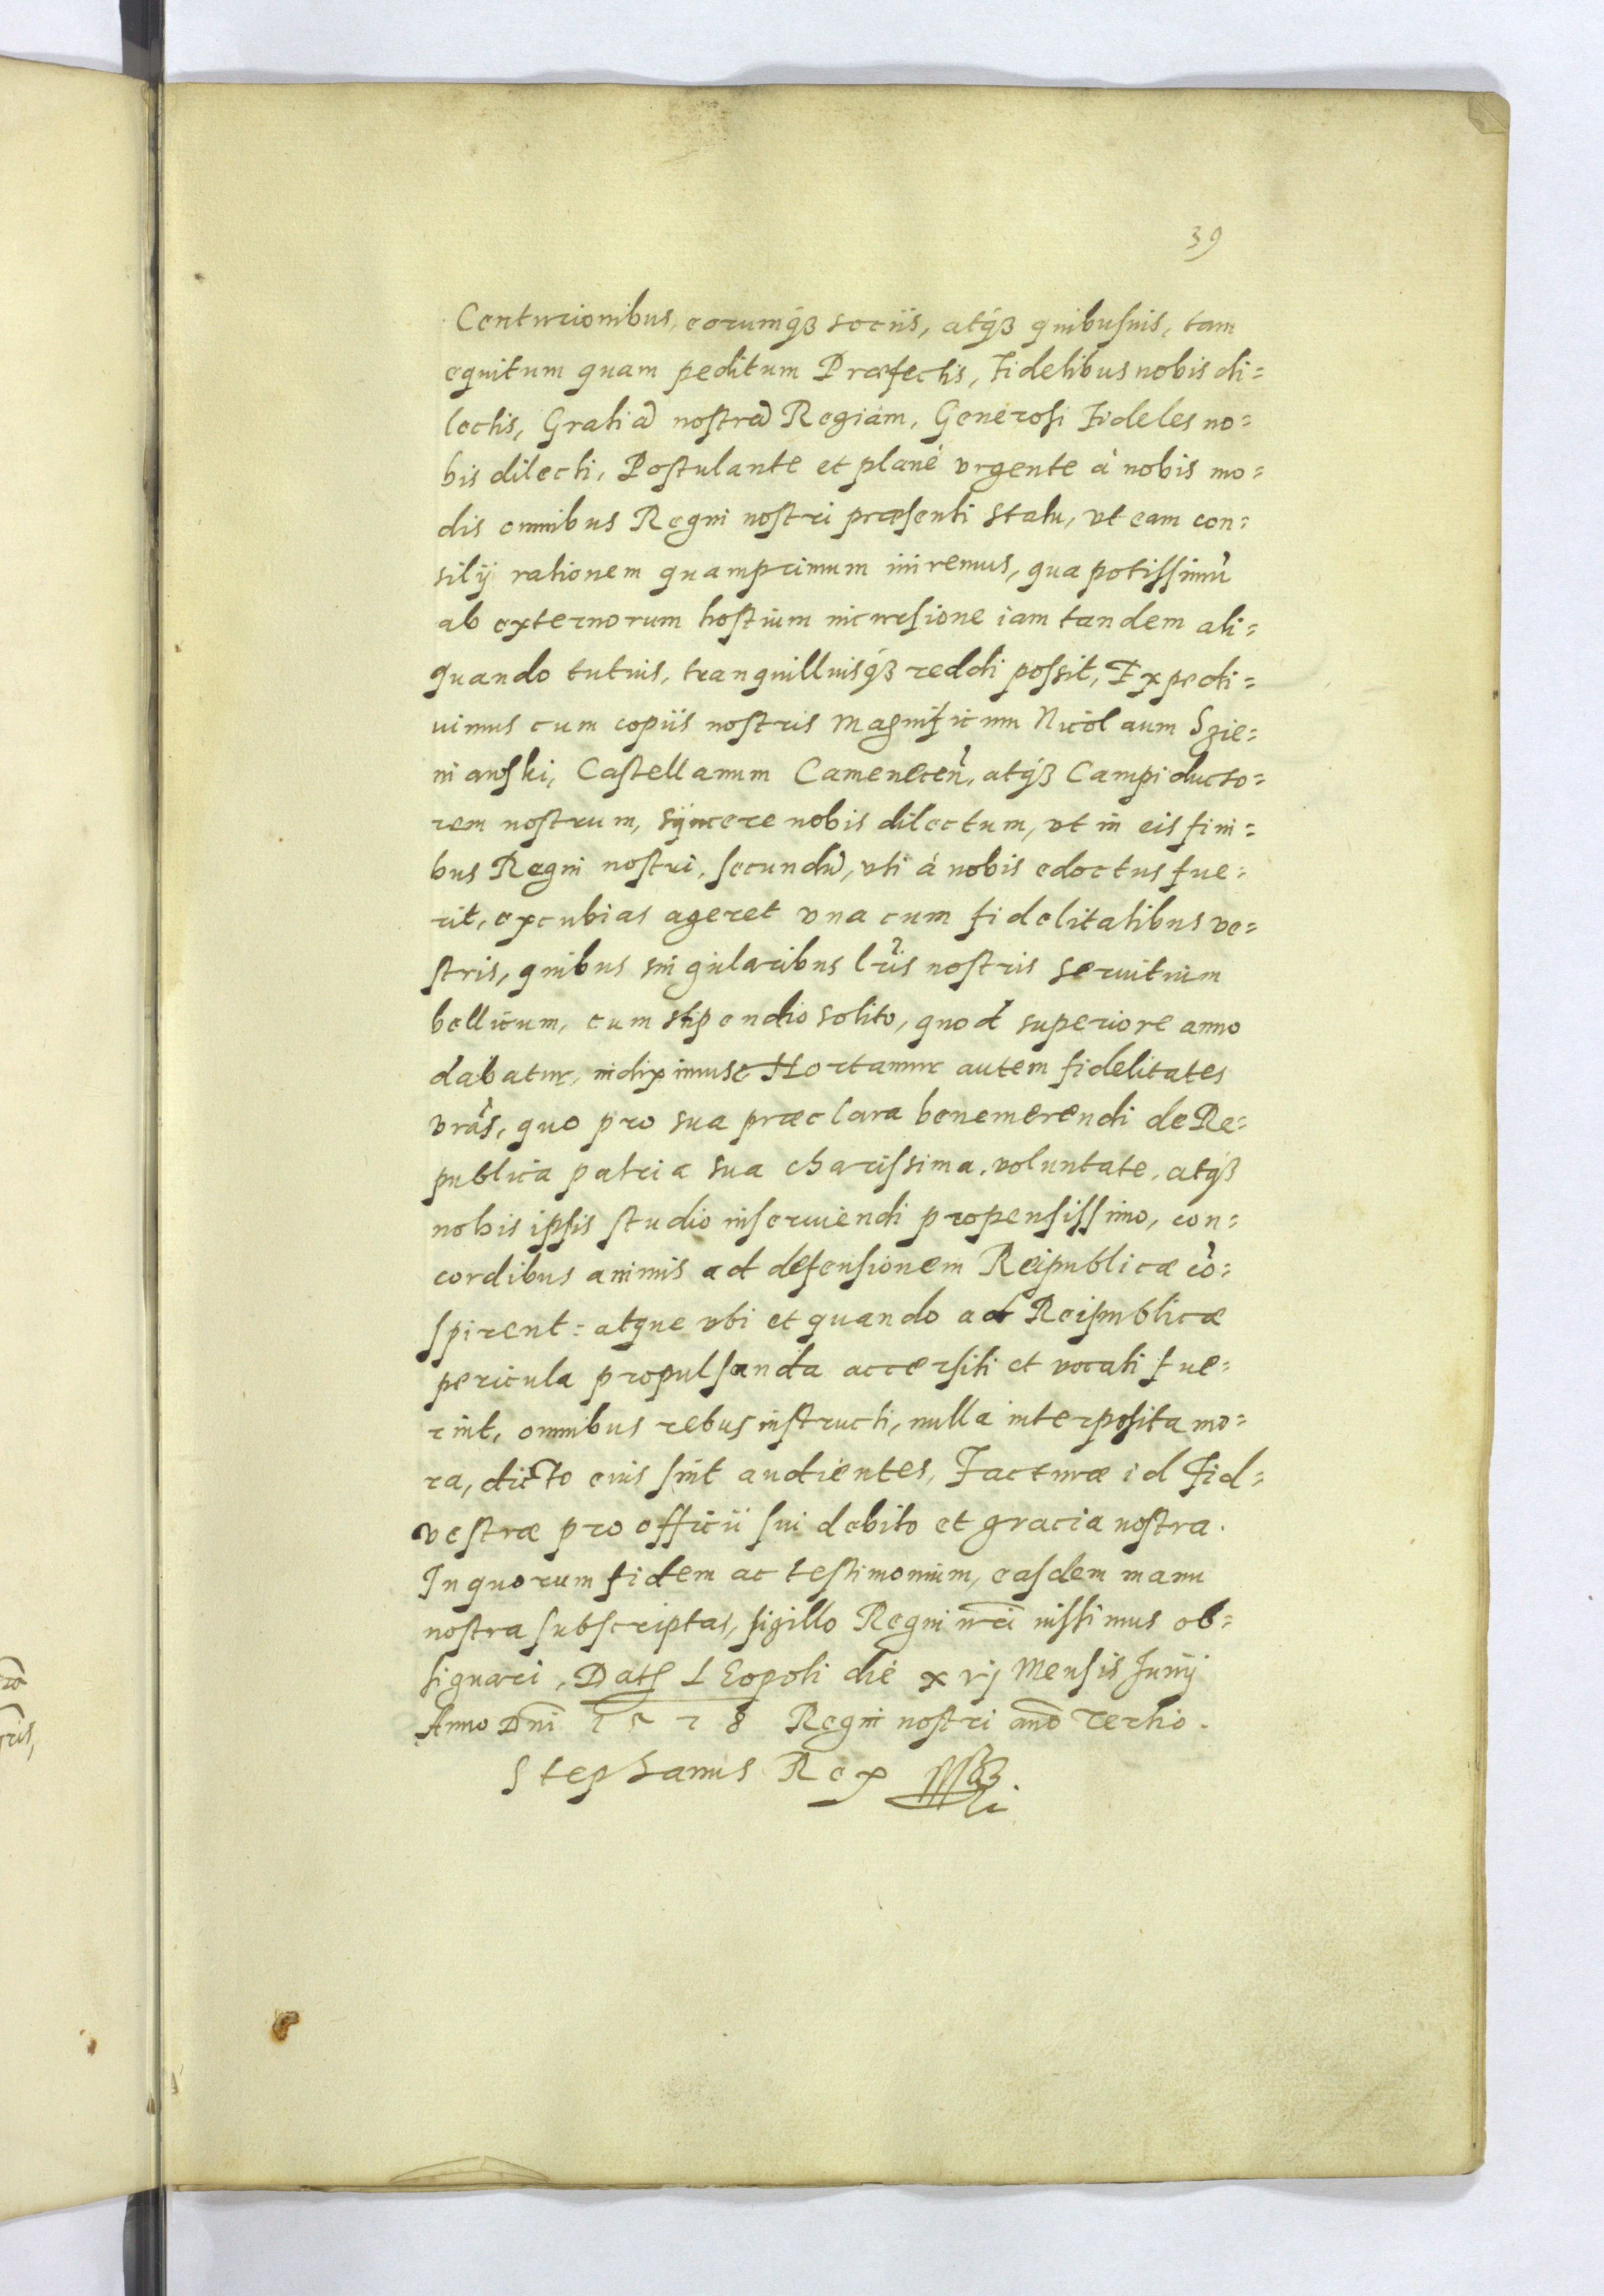 39
Centurionibus, eorumqꝫ sociis, atqꝫ quibusuis, tam
equitum quam peditum Præfectis, Fidelibus nobis di=
lectis, Gratiã nostrã Regiam, Generosi Fideles no=
bis dilecti, Postulante et planè vrgente à nobis mo=
dis omnibus Regni nostri præsenti statu, vt eam con=
silij rationem quamprimum iniremus, qua potissimũ
ab externorum hostium incursione iam tandem ali=
quando tutius, tranquilliusqꝫ reddi possit, Expedi=
uimus cum copiis nostris Magnificum Nicolaum Szie=
niauski, Castellanum Camenecen̄, atqꝫ Campiducto=
rem nostrum, syncere nobis dilectum, vt in eis fini=
bus Regni nostri, secundũ, vti à nobis edoctus fue=
rit, excubias ageret vna cum fidelitatibus ve=
stris, quibus singularibus lr̃is nostris seruitium
bellicum, cum stipendio solito, quod superiore anno
dabatur, indiximus Hortamur autem fidelitates
vrãs, quo pro sua præclara benemerendi de Re=
publica patria sua charissima, voluntate, atqꝫ
nobis ipsis studio inseruiendi propensissimo, con=
cordibus animis ad defensionem Reipublicæ cõ=
spirent: atque vbi et quando ad Reipublicæ
pericula propulsanda accersiti et vocati fue=
rint, omnibus rebus instructi, nulla interposita mo=
ra, dicto eius sint audientes, Facturæ id Fid=
vestræ pro officii sui debito et gracia nostra.
In quorum fidem ac testimonium, easdem manu
nostra subscriptas, sigillo Regni nr̃i iussimus ob=
signari, Dat Leopoli die xvij Mensis Junij
Anno Dñi 1578 Regni nostri año Tertio.
Stephanus Rex